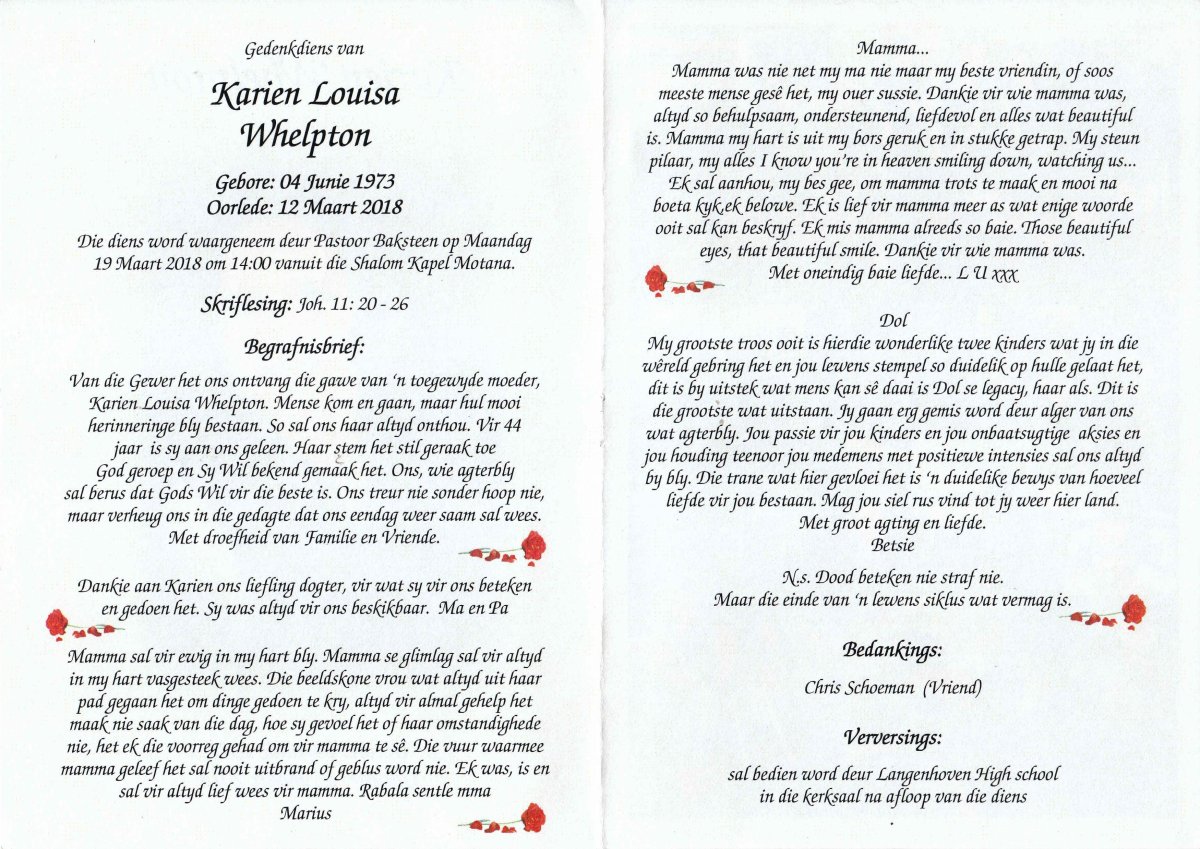 Gedenkdiens van
Karien Louisa
Whelpton
Gebore: 04 Junie 1973
Oorlede: 12 Maart 2018
Die diens word waargeneem deur Pastoor Baksteen op Maandag
19 Maart 2018 om 14:00 vanuit die Shalom Kapel Motana.
Skriflesing: Joh. 11: 20 - 26
Begrafnisbrief:
Van die Gewer het ons ontvang die gawe van ‘n toegewyde moeder,
Karien Louisa Whelpton. Mense kom en gaan, maar hul mooi
herinneringe bly bestaan. So sal ons haar altyd onthou. Vir 44
jaar is sy aan ons geleen. Haar stem het stil geraak toe
God geroep en Sy Wil bekend gemaak het. Ons, wie agterbly
sal berus dat Gods Wil vir die beste is. Ons treur nie sonder hoop nie,
maar verheug ons in die gedagte dat ons eendag weer saam sal wees.
Met droefheid van Familie en Vriende.
Dankie aan Karien ons liefling dogter, vir wat sy vir ons beteken
en gedoen het. Sy was altyd vir ons beskikbaar. Ma en Pa
Mamma sal vir ewig in my hart bly. Mamma se glimlag sal vir altyd
in my hart vasgesteek wees. Die beeldskone vrou wat altyd uit haar
pad gegaan het om dinge gedoen te kry, altyd vir almal gehelp het
maak nie saak van die dag, hoe sy gevoel het of haar omstandighede
nie, het ek die voorreg gehad om vir mamma te sê. Die vuur waarmee
mamma geleef het sal nooit uitbrand of geblus word nie. Ek was, is en
sal vir altyd lief wees vir mamma. Rabala sentle mma
Marius
Mamma...
Mamma was nie net my ma nie maar my beste vriendin, of soos
meeste mense gesê het, my ouer sussie. Dankie vir wie mamma was,
altyd so behulpsaam, ondersteunend, liefdevol en alles wat beautiful
is. Mamma my hart is uit my bors geruk en in stukke getrap. My steun
pilaar, my alles I know you’re in heaven smiling down, watching us...
Ek sal aanhou, my bes gee, om mamma trots te maak en mooi na
boeta kyk,ek belowe. Ek is lief vir mamma meer as wat enige woorde
ooit sal kan beskryf. Ek mis mamma alreeds so baie. Those beautiful
eyes, that beautiful smile. Dankie vir wie mamma was.
Met oneindig baie liefde... L U xxx
Dol
My grootste troos ooit is hierdie wonderlike twee kinders wat jy in die
wêreld gebring het en jou lewens stempel so duidelik op hulle gelaat het,
dit is by uitstek wat mens kan sê daai is Dol se legacy, haar als. Dit is
die grootste wat uitstaan. Jy gaan erg gemis word deur alger van ons
wat agterbly. Jou passie vir jou kinders en jou onbaatsugtige aksies en
jou houding teenoor jou medemens met positiewe intensies sal ons altyd
by bly. Die trane wat hier gevloei het is ‘n duidelike bewys van hoeveel
liefde vir jou bestaan. Mag jou siel rus vind tot jy weer hier land.
Met groot agting en liefde.
Betsie
N.s. Dood beteken nie straf nie.
Maar die einde van ‘n lewens siklus wat vermag is.
Bedankings:
Chris Schoeman (Vriend)
Verversings:
sal bedien word deur Langenhoven High school
in die kerksaal na afloop van die diens